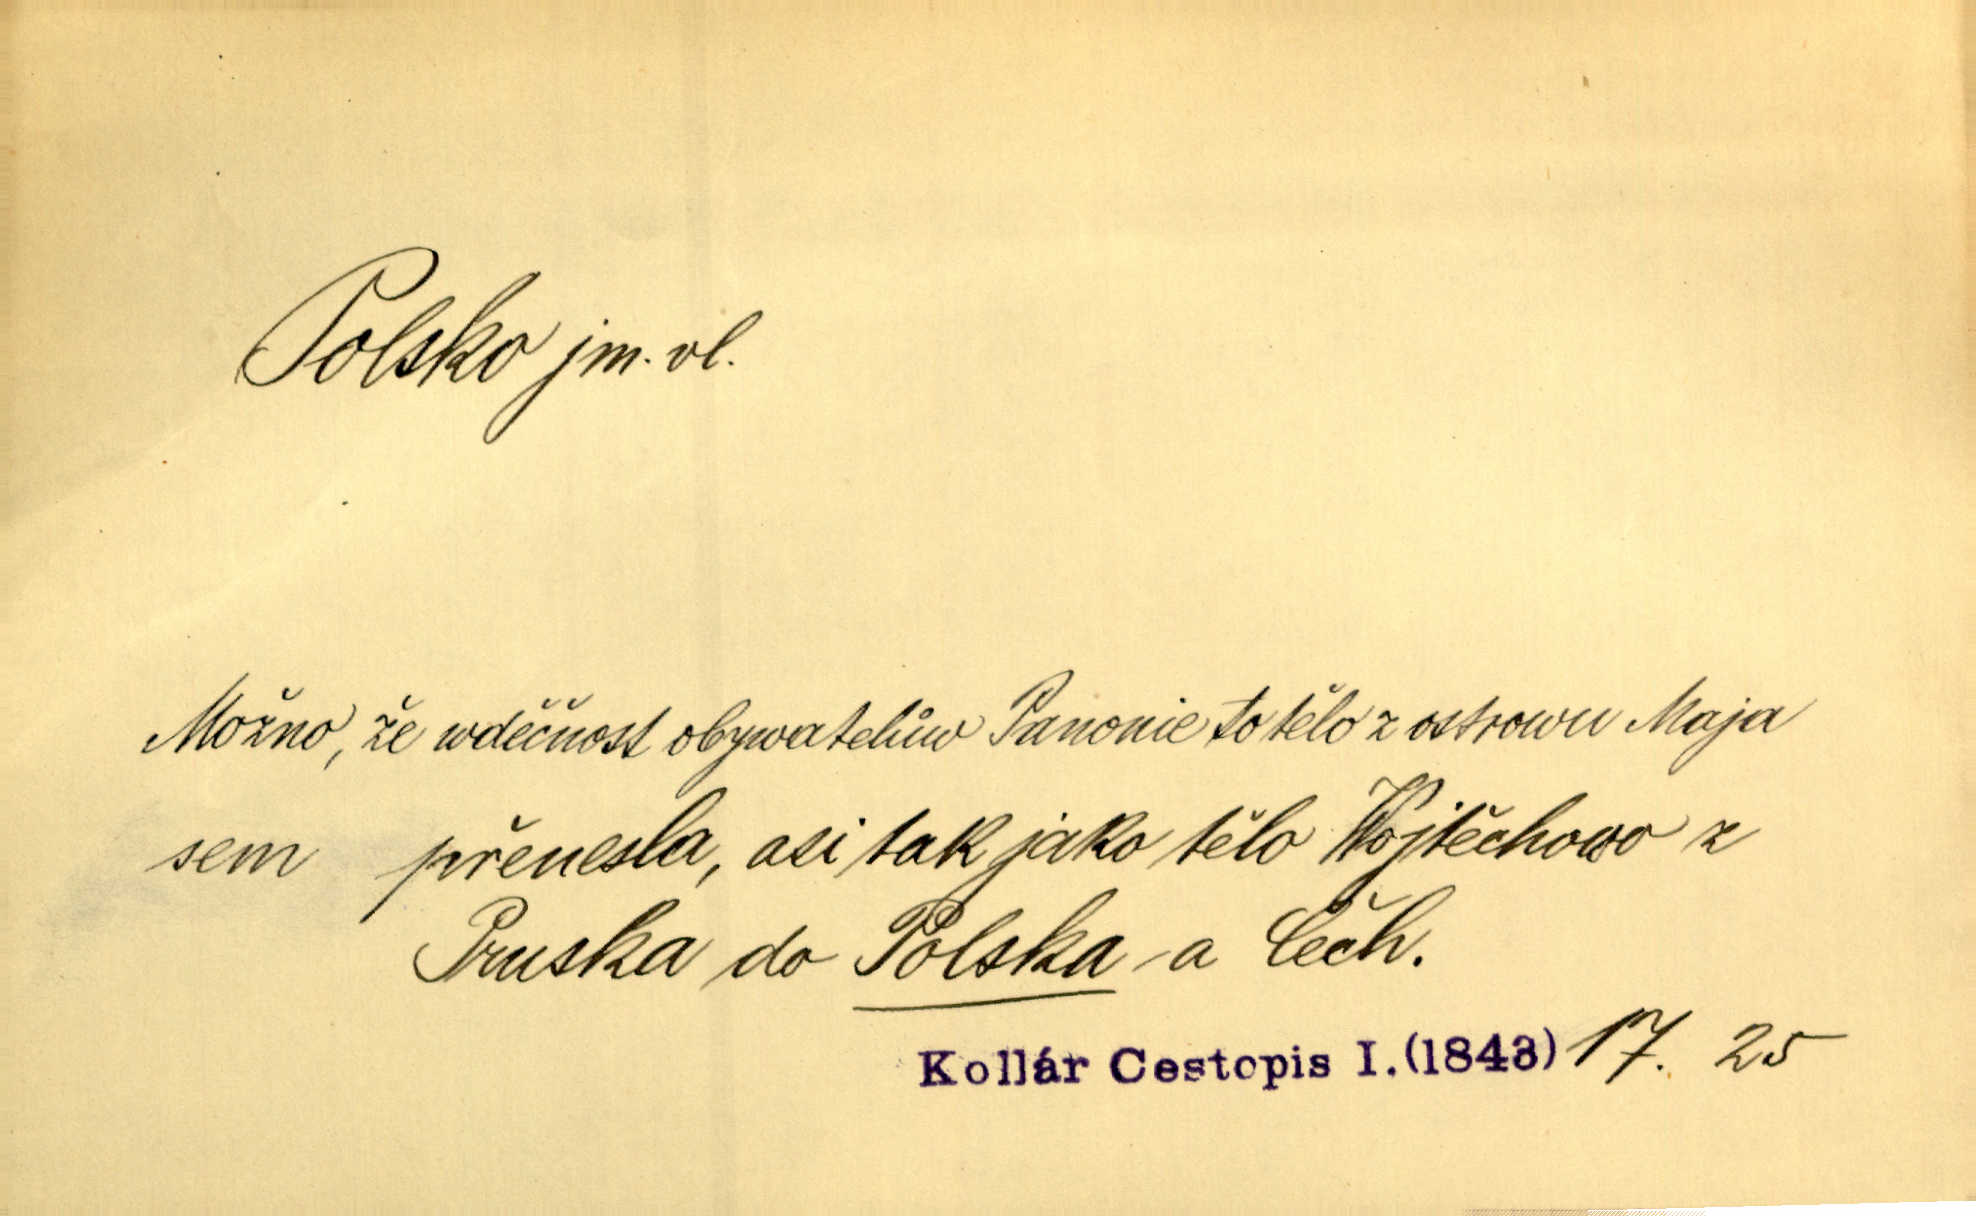 Polsko jm. vl.
Možno, že wděčnost obywatelůw Panonie to tělo z ostrowu Maja
sem přenesla, asi tak jako tělo Wojtěchowo z
Pruska do Polska a Čech.
Kollár Cestopis I.(1843) 17. 25